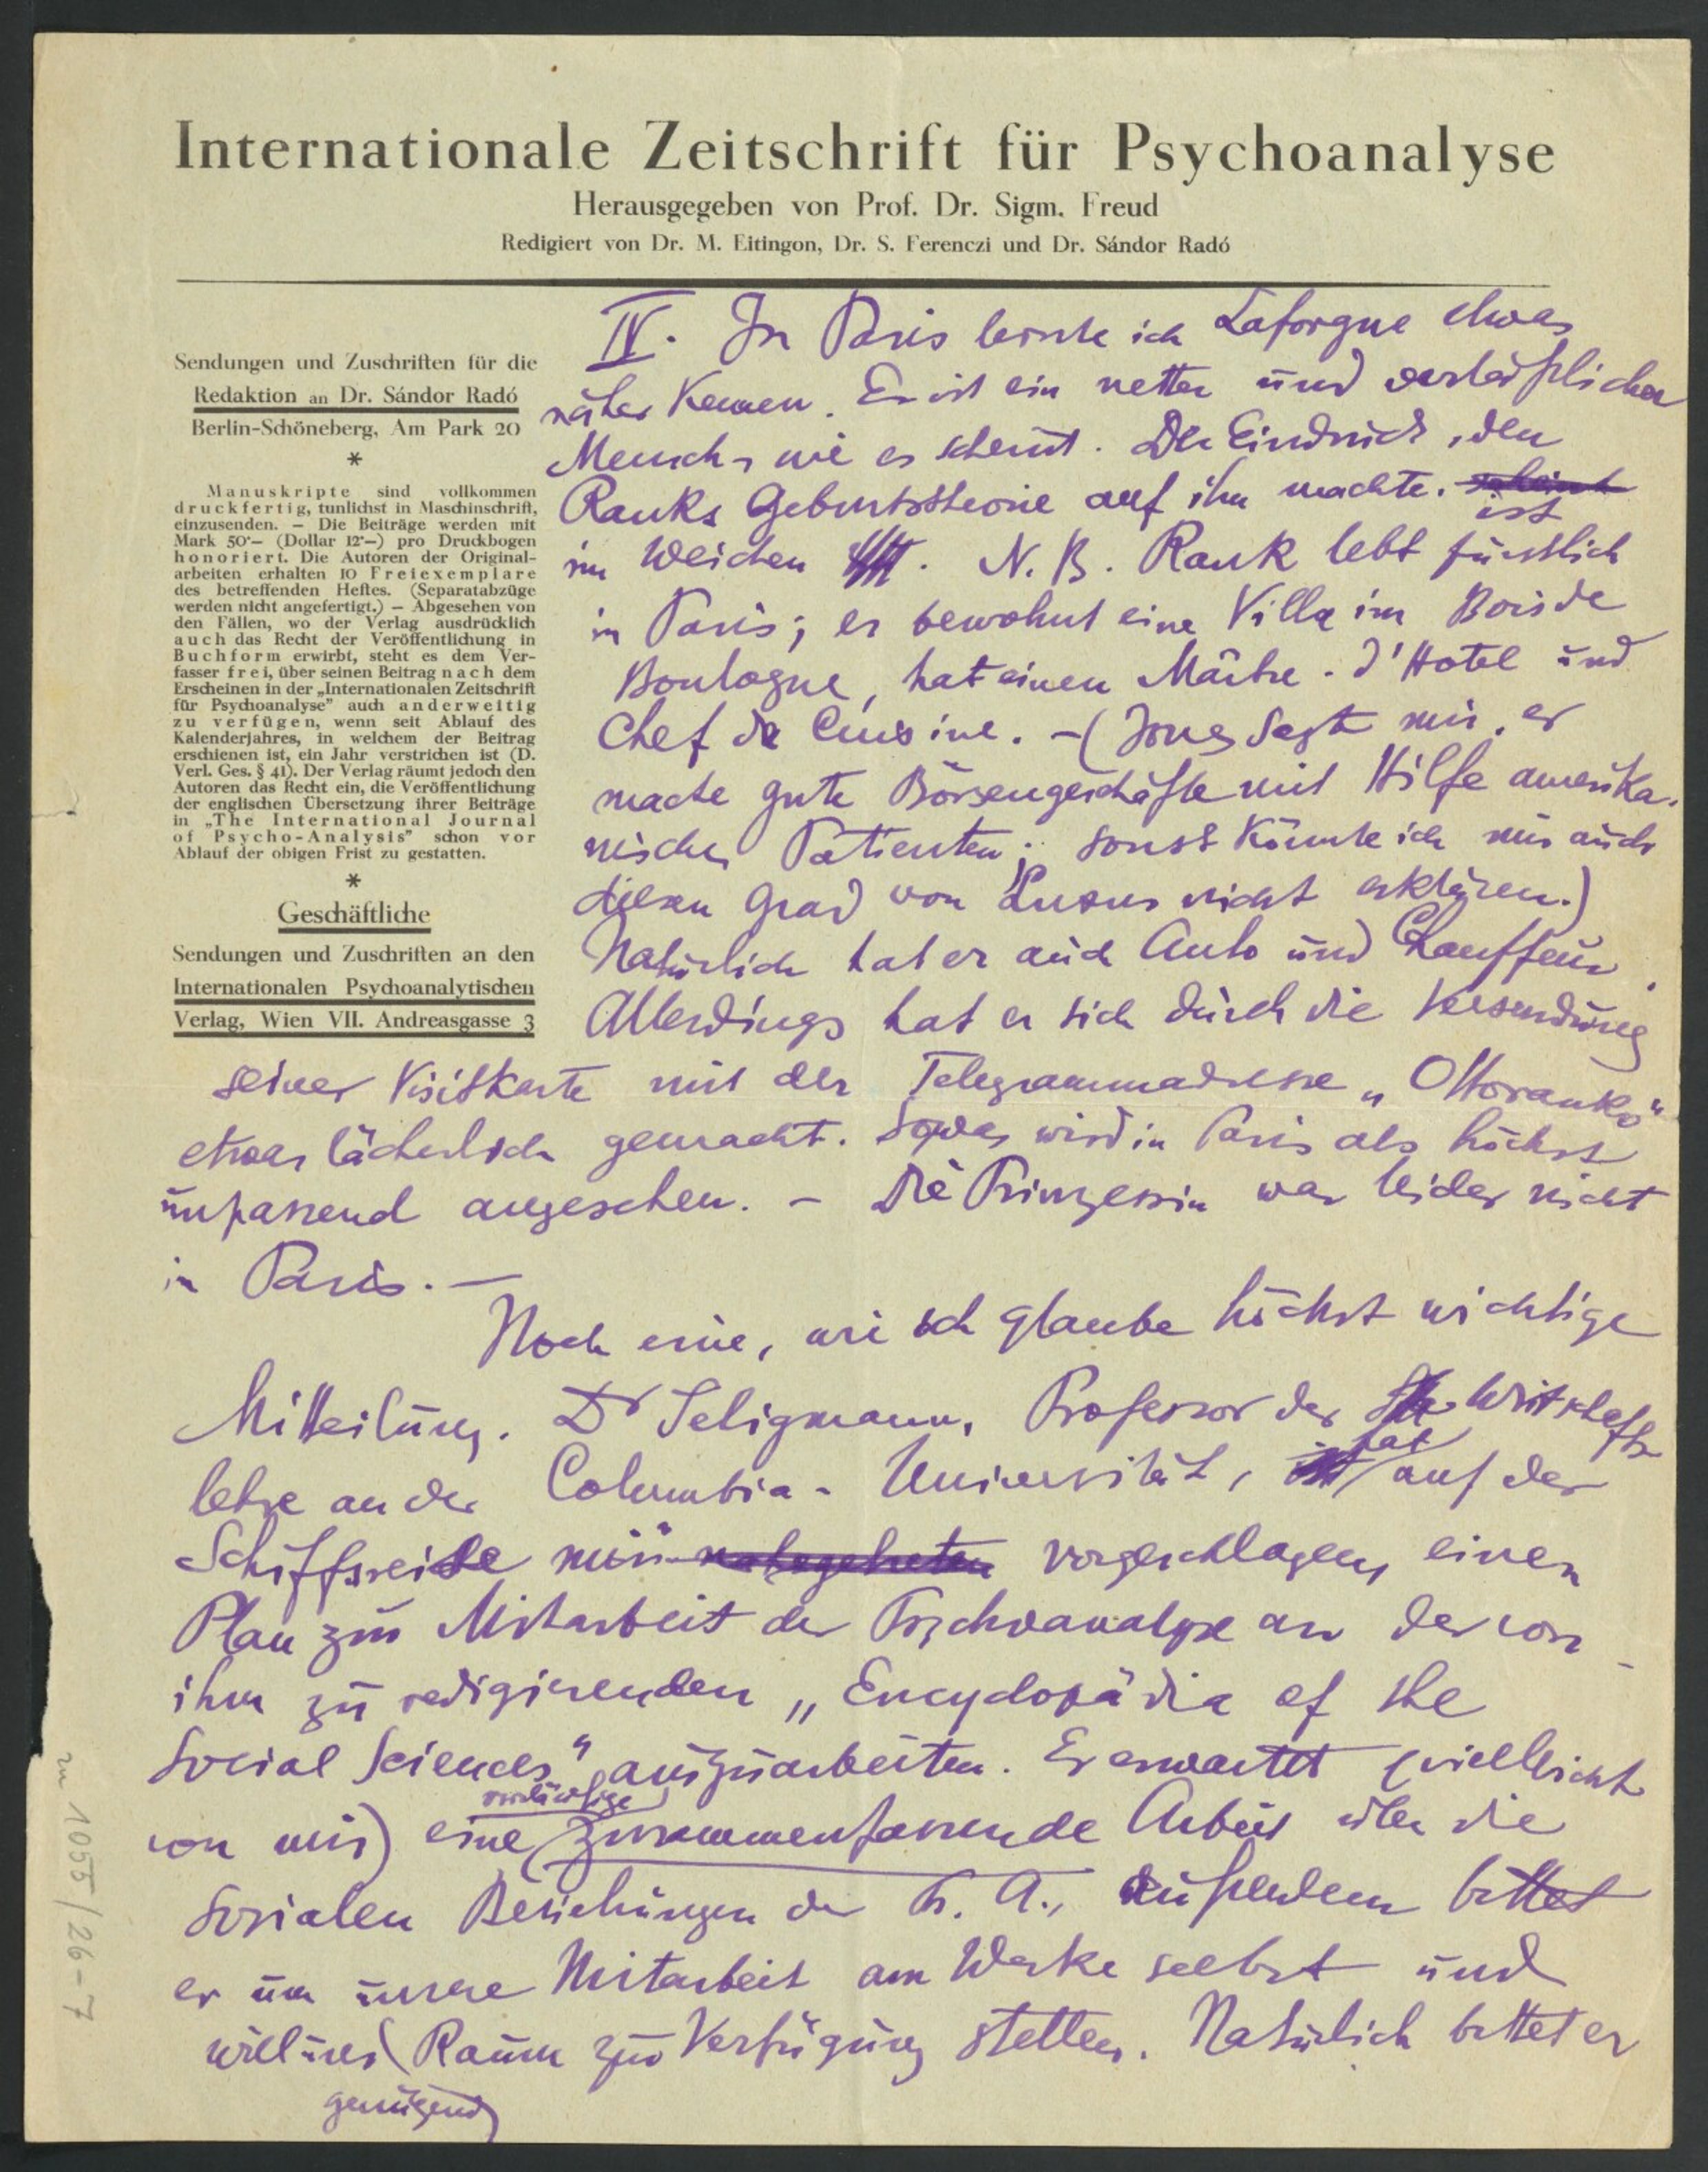 Internationale Zeitschrift für Psychoanalyse
Herausgegeben von Prof. Dr. Sigm. Freud
Redigiert von Dr. M. Eitingon, Dr. S. Ferenczi und Dr. Sándor Radó
Sendungen und Zuschriften für die
Redaktion an Dr. Sándor Radó
Berlin-Schöneberg, Am Park 20
*
Manuskripte sind vollkommen
druckfertig, tunlichst in Maschinschrift,
einzusenden. — Die Beiträge werden mit
Mark 50·— (Dollar 12·—) pro Druckbogen
honoriert. Die Autoren der Original-
arbeiten erhalten 10 Freiexemplare
des betreffenden Heftes. (Separatabzüge
werden nicht angefertigt.) — Abgesehen von
den Fällen, wo der Verlag ausdrücklich
auch das Recht der Veröffentlichung in
Buchform erwirbt, steht es dem Ver-
fasser frei, über seinen Beitrag nach dem
Erscheinen in der „Internationalen Zeitschrift
für Psychoanalyse” auch anderweitig
zu verfügen, wenn seit Ablauf des
Kalenderjahres, in welchem der Beitrag
erschienen ist, ein Jahr verstrichen ist (D.
Verl. Ges. § 41). Der Verlag räumt jedoch den
Autoren das Recht ein, die Veröffentlichung
der englischen Übersetzung ihrer Beiträge
in „The International Journal
of Psycho-Analysis” schon vor
Ablauf der obigen Frist zu gestatten.
*
Geschäftliche
Sendungen und Zuschriften an den
Internationalen Psychoanalytischen
Verlag, Wien VII. Andreasgasse 3
IV. In Paris lernte ich Laforgue etwas
näher kennen. Er ist ein netter und verläßlicher
Mensch, wie es scheint. Der Eindruck, den
Ranks Geburtstheorie auf ihn machte, scheint
ist
im Weichen. N.B. Rank lebt fürstlich
in Paris; er bewohnt eine Villa im Bois de
Boulogne, hat einen Maître-d'Hotel und
Chef de Cuisine. – (Jones sagt mir, er
mache gute Börsengeschäfte mit Hilfe amerika-
nischer Patienten; sonst könnte ich mir auch
diesen Grad von Luxus nicht erklären.)
Natürlich hat er auch Auto und Chauffeur.
Allerdings hat er sich durch die Versendung
seiner Visitkarte mit der Telegrammadresse „Ottoranko“
etwas lächerlich gemacht. Sowas wird in Paris als höchst
unpassend angesehen. – Die Prinzessin war leider nicht
in Paris. —
Noch eine, wie ich glaube höchst wichtige
Mitteilung. Dr Seligmann, Professor der Wirtschafts
lehre an der Columbia-Universität, hat auf der
Schiffsreise mir nahegebeten vorgeschlagen, einen
Plan zur Mitarbeit der Psychoanalyse an der von
ihm zu redigirenden „Encyclopädia of the
Social Sciences“ auszuarbeiten. Er erwartet (vielleicht
vorläufige
von mir) eine zusammenfassende Arbeit über die
sozialen Beziehungen der Ps. A., außerdem bittet
er um unsere Mitarbeit am Werke selbst und
will uns Raum zur Verfügung stellen. Natürlich bittet er
genügend
zu 1055/26-7